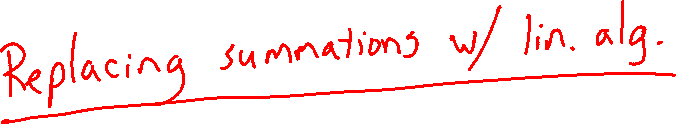 Replacing summations w/ lin. alg.